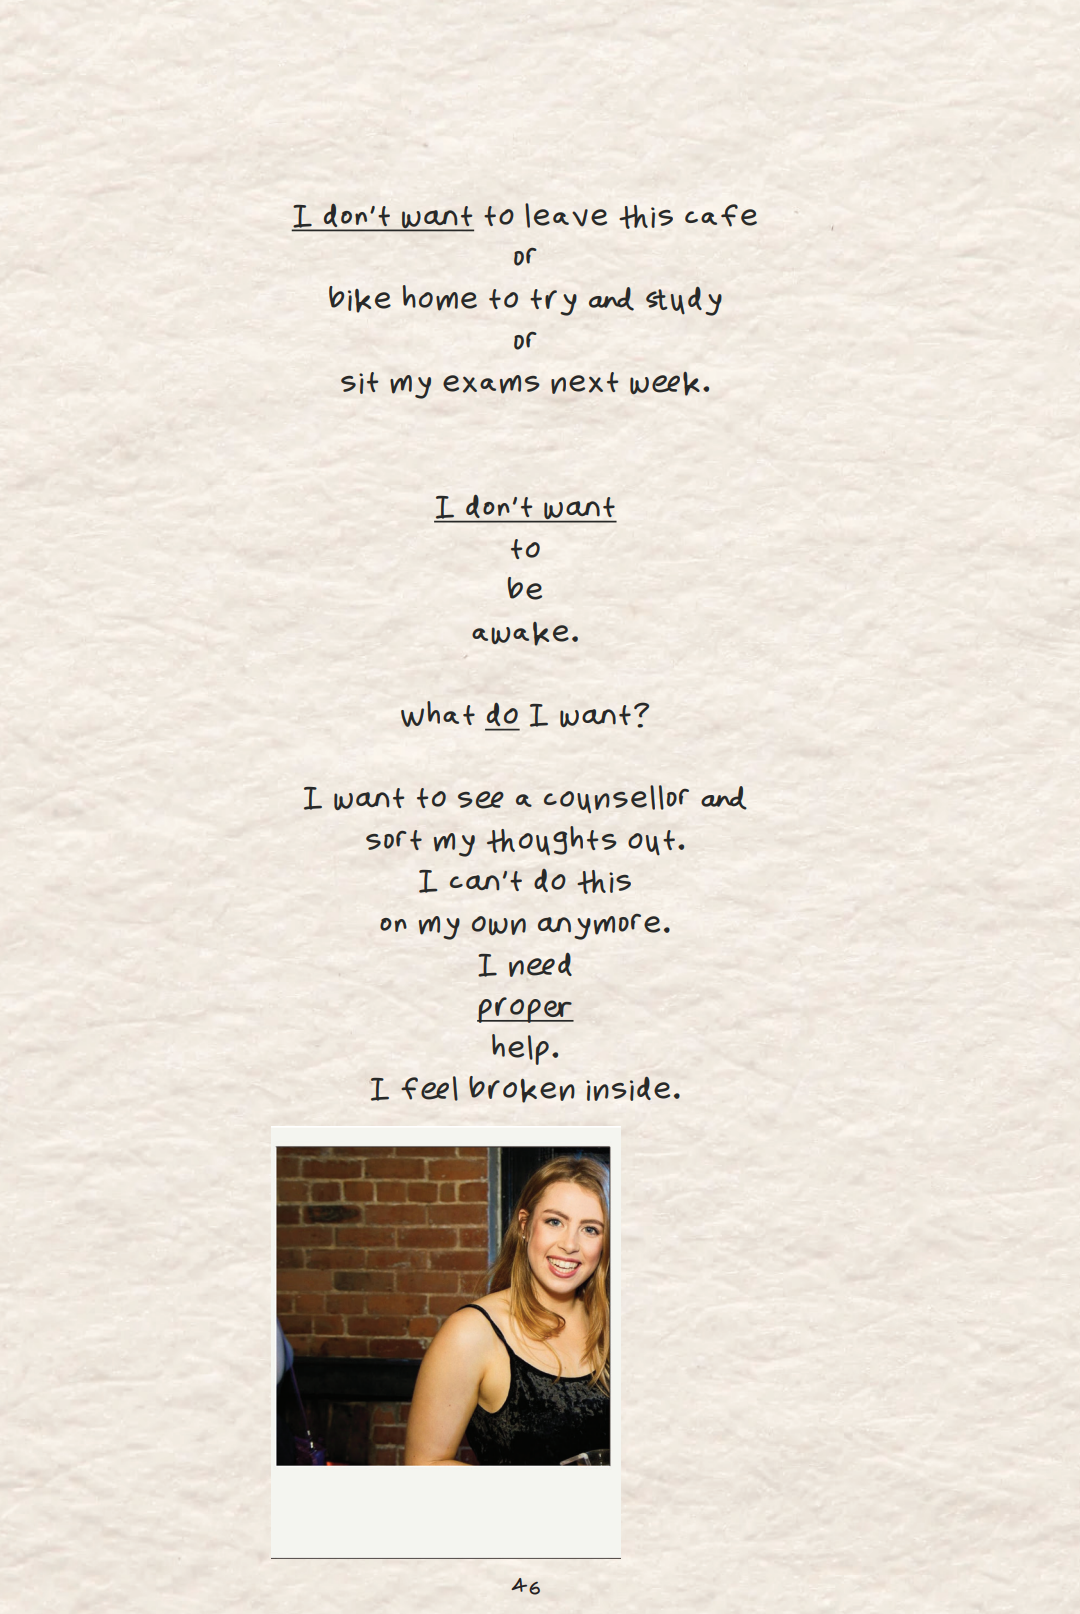 I don't want to leave this cafe
or
bike home to try and study
or
sit my exams next week.
I don't want
to
be
awake.
what do I want?
I want to see a counsellor and
sort my thoughts out.
I can't do this
on my own anymore.
I need
proper
help.
I feel broken inside.
46